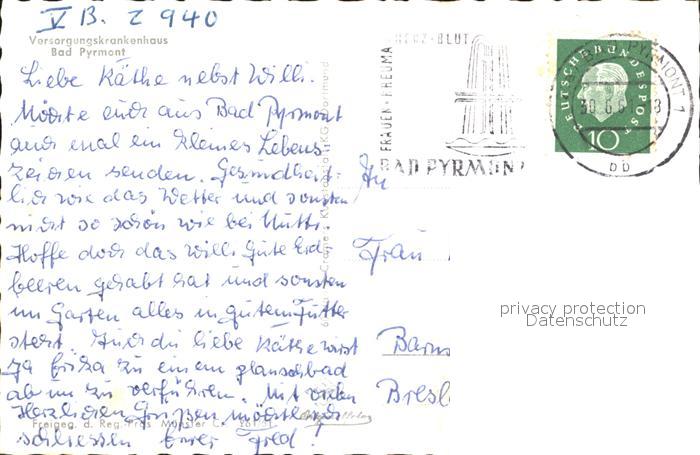 V B. Z 940
Versorgungskrankenhaus
Bad Pyrmont
Liebe Käthe nebst Willi.
Möchte euch aus Bad Pyrmont
auch mal ein kleines Lebens-
zeichen senden. Gesundheit-
lich wie das Wetter und sonsten
nicht so schön wie bei Mutti.
Hoffe doch das Willi Gute Erd-
beeren gehabt hat und sonsten
im Garten alles in gutem Futter
steht. Auch du liebe Käthe wirst
ja zu einem planschbad
ab und zu verführen. Mit vielen
Herzlichen Grüssen möchte ich
schliessen Euer Fred.
Freigeg. d. Reg. Präs. Münster
FRAUEN · RHEUMA
HERZ · BLUT
BAD PYRMONT
DEUTSCHE BUNDESPOST
10
BAD PYRMONT 1
bb
An
Frau
privacy protection
Datenschutz